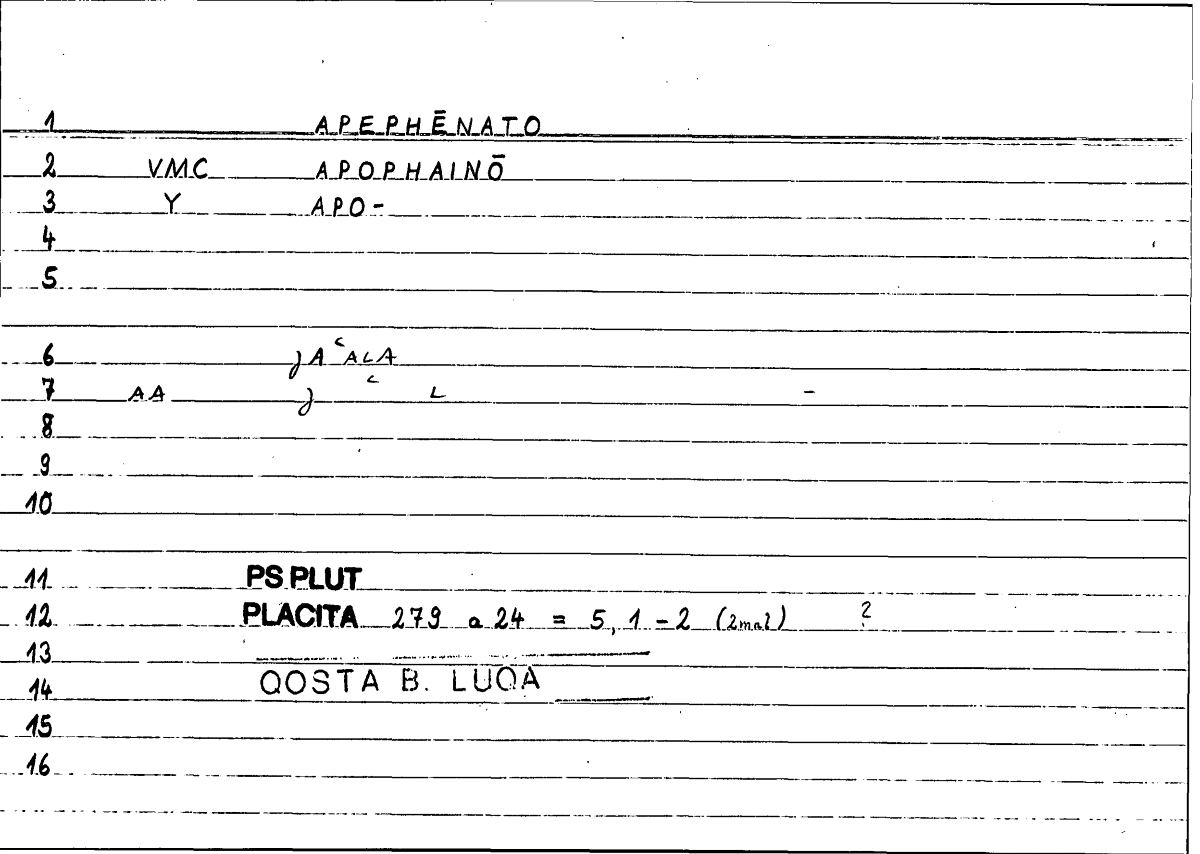 1 APEPHĒNATO
2 VMC APOPHAINŌ
3 Y APO-
4
5
6 ȷAʿALA
7 AA ȷ ʿ L -
8
9
10
11 PS PLUT
12 PLACITA 279 a 24 = 5, 1-2 (2mal) ?
13
14 QOSTA B. LUQA
15
16